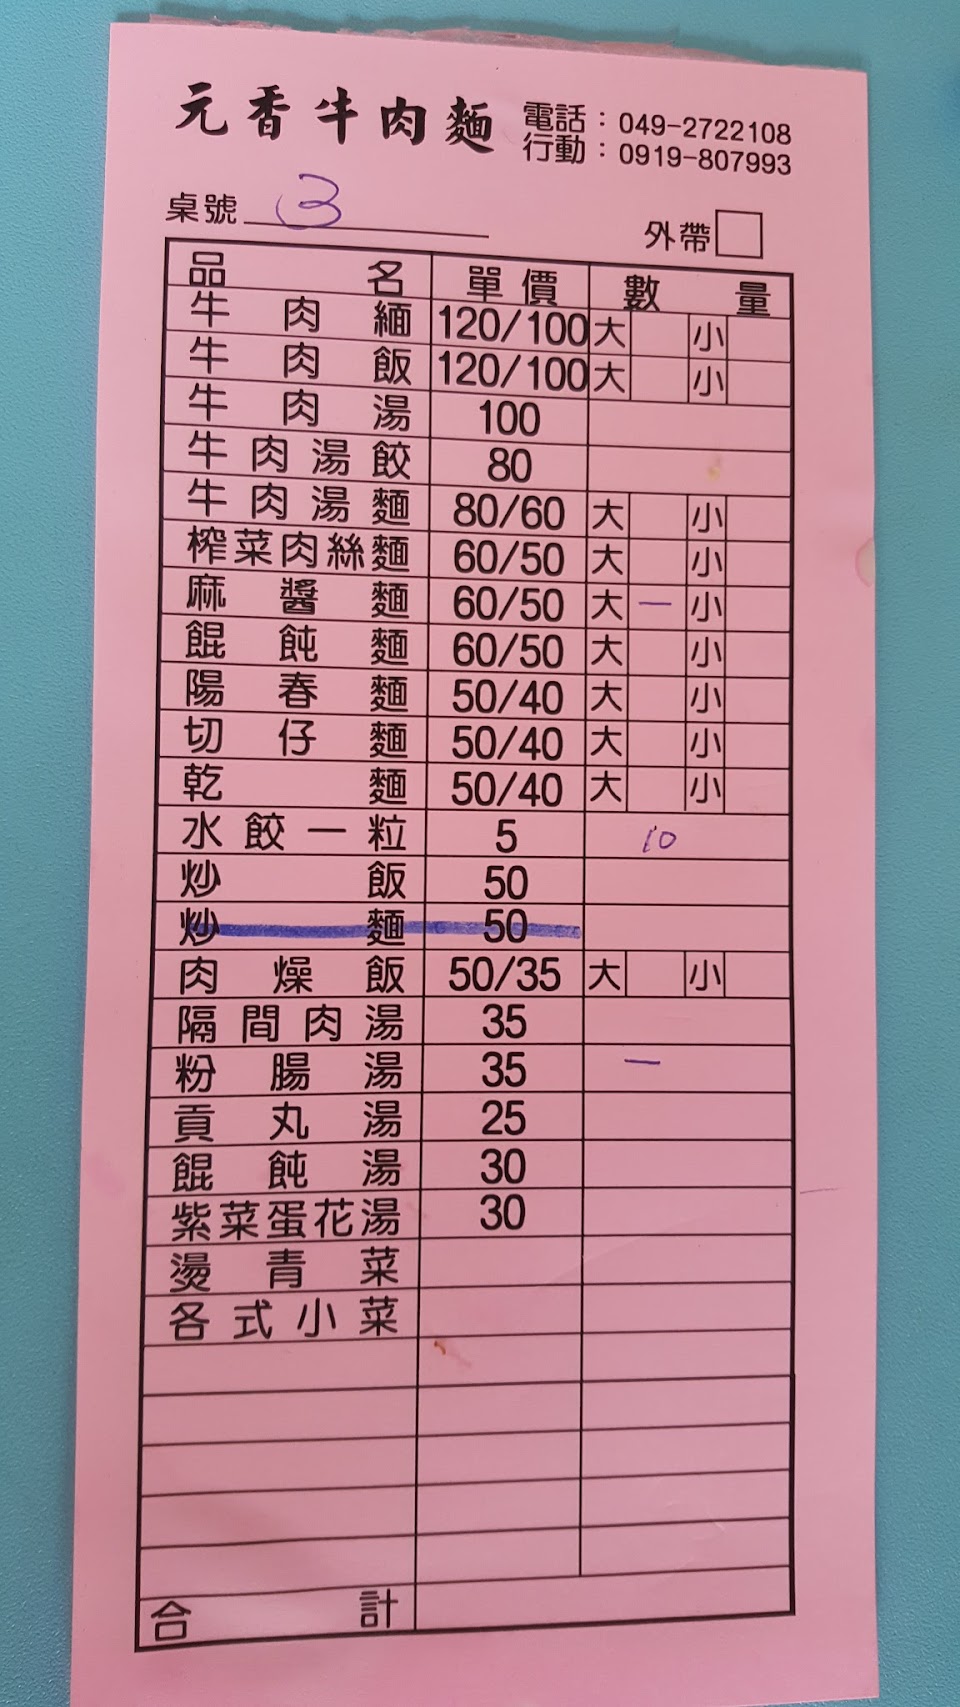 元香牛肉麵 電話：049-2722108
行動：0919-807993
桌號 3 外帶
品名 單價 數量
牛肉緬 120/100 大 小
牛肉飯 120/100 大 小
牛肉湯 100
牛肉湯餃 80
牛肉湯麵 80/60 大 小
榨菜肉絲麵 60/50 大 小
麻醬麵 60/50 大 一 小
餛飩麵 60/50 大 小
陽春麵 50/40 大 小
切仔麵 50/40 大 小
乾麵 50/40 大 小
水餃一粒 5 10
炒飯 50
炒麵 50
肉燥飯 50/35 大 小
隔間肉湯 35
粉腸湯 35 一
貢丸湯 25
餛飩湯 30
紫菜蛋花湯 30
燙青菜
各式小菜
合計